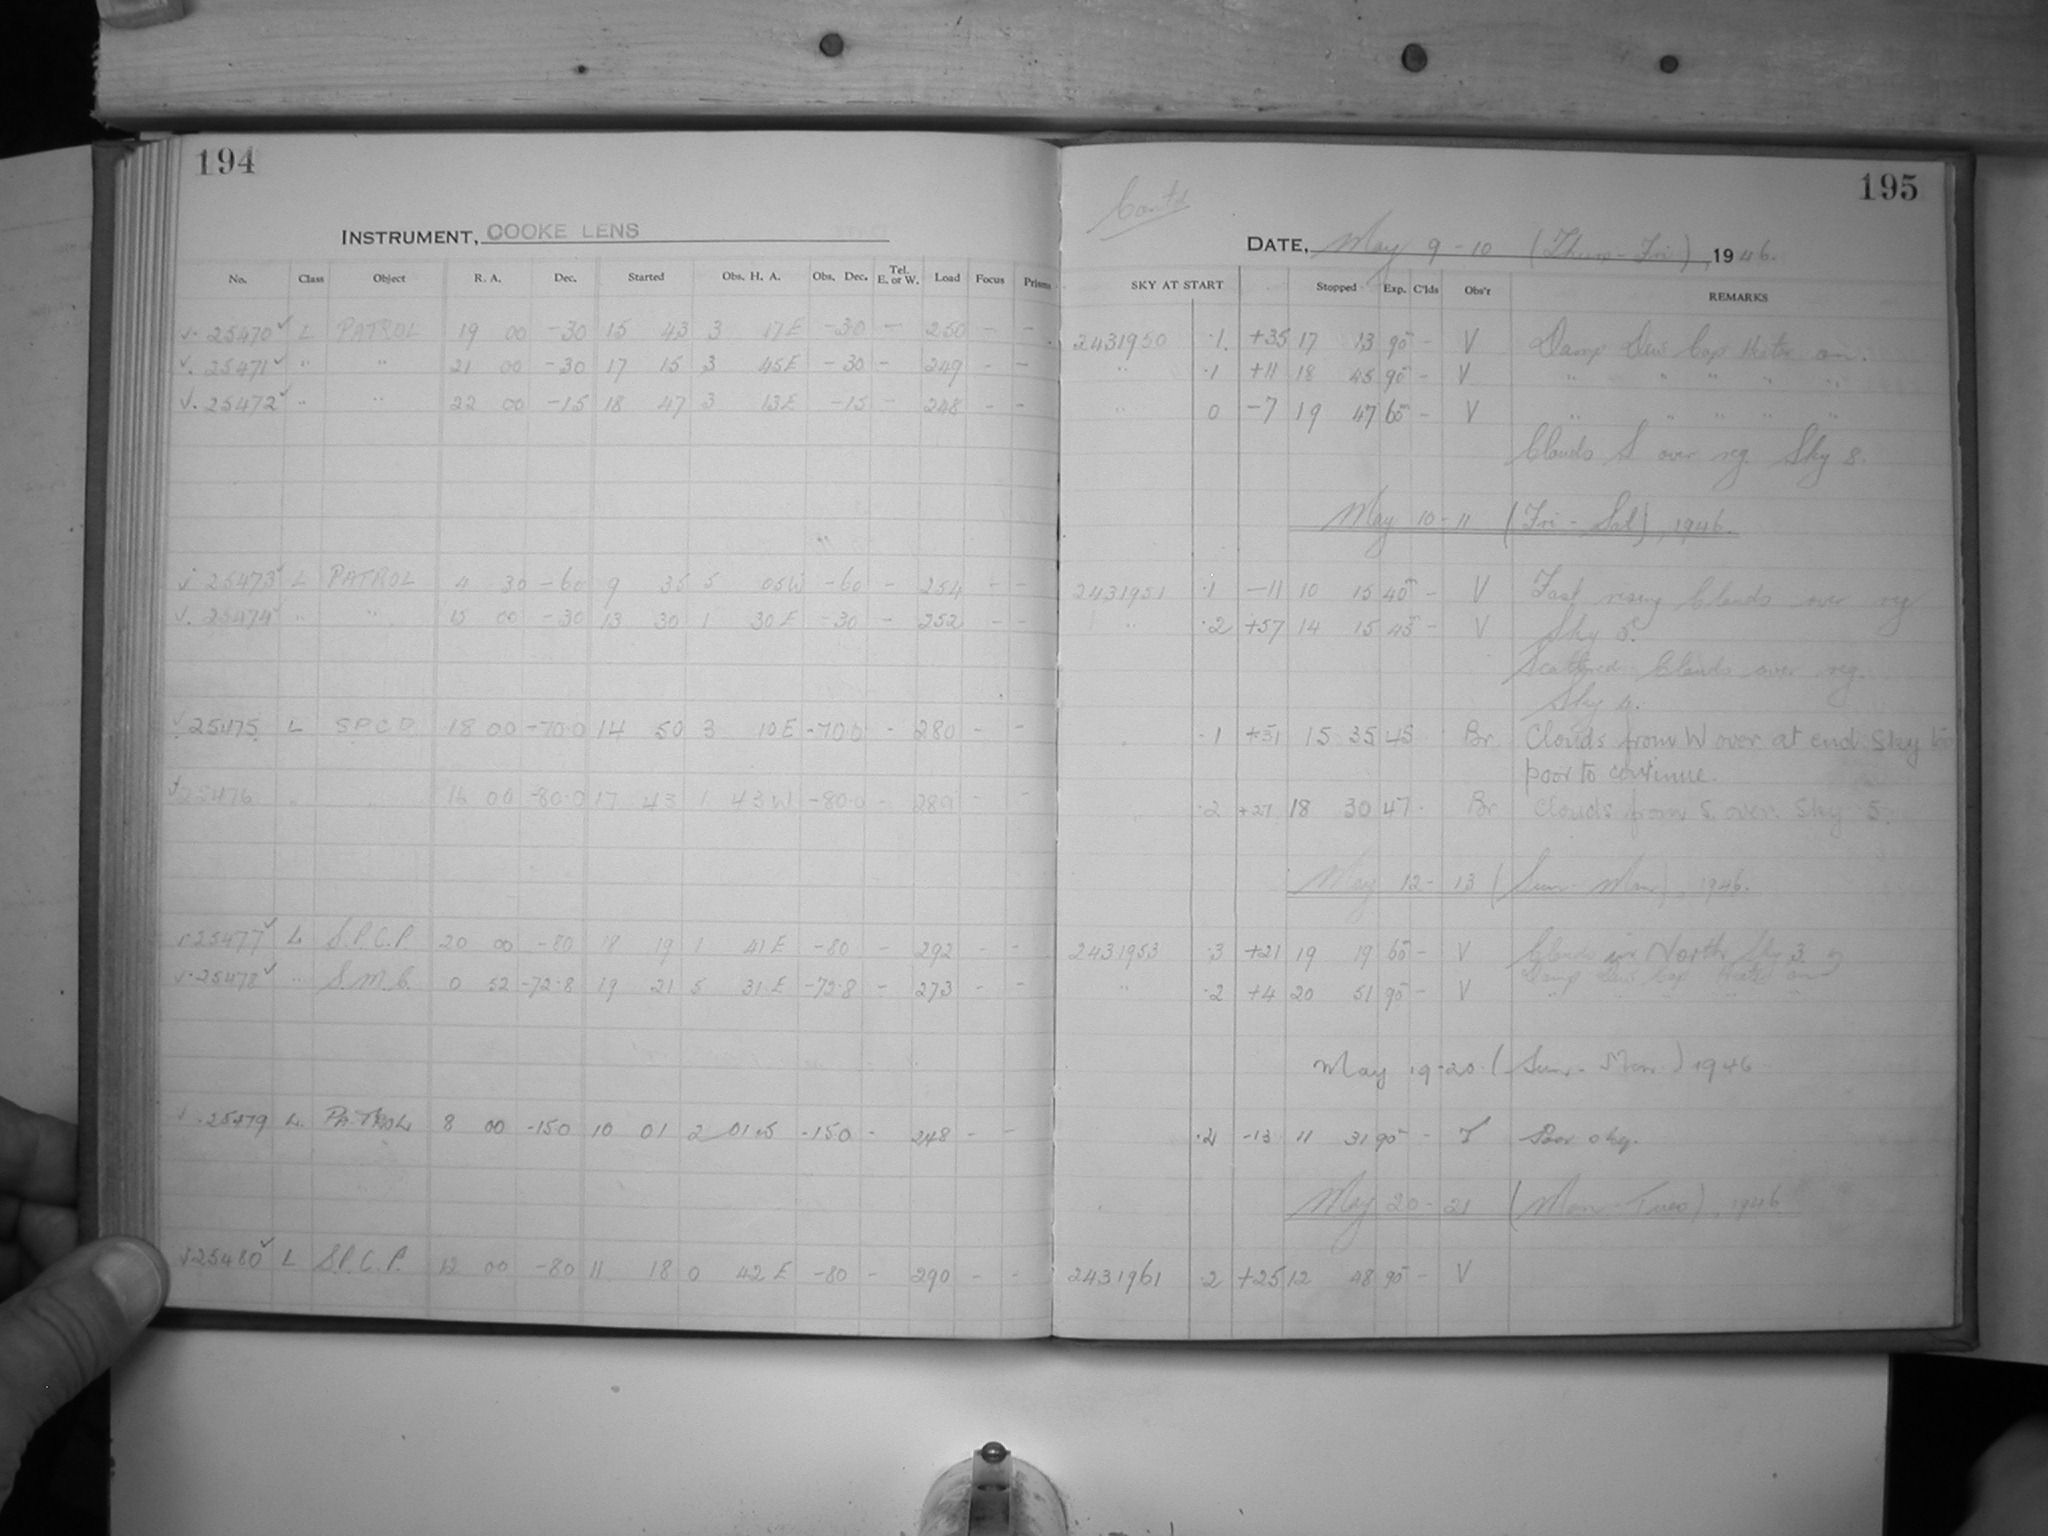 194
INSTRUMENT, COOKE LENS
No. Class Object R. A. Dec. Started Obs. H. A. Obs. Dec. Tel. E. or W. Load Focus Prisms
25470 L PATROL 19 00 -30 15 43 3 17E -30 - 250 - -
25471 " " 21 00 -30 17 15 3 45E -30 - 249 - -
25472 " " 22 00 -15 18 47 3 13E -15 - 248 - -
25473 L PATROL 4 30 -60 9 35 5 05W -60 - 254 - -
25474 " " 15 00 -30 13 30 1 30E -30 - 252 - -
25475 L SPCP 18 00 -70.0 14 50 3 10E -70.0 - 280 - -
25476 " " 16 00 -80.0 17 43 1 43W -80.0 - 289 - -
25477 L S.P.C.P. 20 00 -80 18 19 1 41E -80 - 292 - -
25478 " S.M.C. 0 52 -72.8 19 21 5 31E -72.8 - 273 - -
25479 L. PATROL 8 00 -15.0 10 01 2 01 -15.0 - 248 - -
25480 L S.P.C.P. 12 00 -80 11 18 0 42E -80 - 290 - -
195
Contd
DATE, May 9-10 (Thurs-Fri), 1946.
SKY AT START Stopped Exp. C'lds Obs'r REMARKS
2431950 .1 +35 17 13 90 - V Damp Dew Cap Heter on.
" .1 +11 18 45 90 - V " " " " "
" 0 -7 19 47 60 - V " " " " "
Clouds S over reg. Sky 8.
May 10-11 (Fri-Sat), 1946.
2431951 .1 -11 10 15 40 - V Fast rising Clouds over reg
" .2 +57 14 15 45 - V Sky 5.
Scattered Clouds over reg.
Sky 4.
" .1 +31 15 35 45 Br. Clouds from W over at end. Sky too
poor to continue.
" .2 +27 18 30 47 Br Clouds from S. over. Sky 5.
May 12-13 (Sun-Mon), 1946.
2431953 .3 +21 19 19 60 - V Clouds in North Sky 3
Damp Dew Cap Heater on
" .2 +4 20 51 90 - V " " " " "
May 19-20 (Sun-Mon) 1946
-13 11 31 90 - T Poor sky.
May 20-21 (Mon-Tues), 1946
2431961 .2 +25 12 48 90 - V